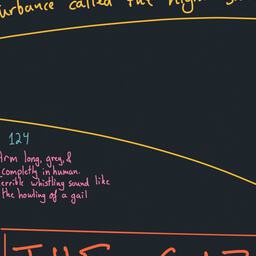 urbance called the nigh
124
Arm long, grey, &
completly in human.
errible whistling sound like
the howling of a gail